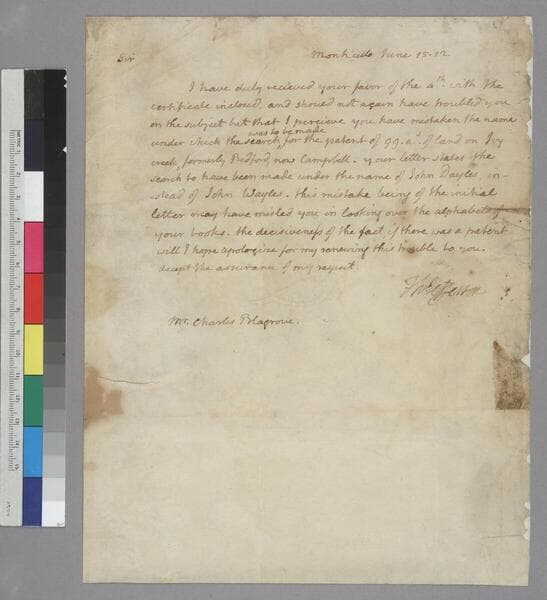 Sir
Monticello June 15. 12
I have duly recieved your favor of the 4th with the
certificate inclosed, and should not again have troubled you
on the subject but that I percieve you have mistaken the name
was to be made
under which the search for the patent of 99. as. of land on Ivy
creek, formerly Bedford, now Campbell. your letter states the
search to have been made under the name of John Dayles, in-
-stead of John Wayles. this mistake being of the initial
letter may have misled you in looking over the alphabets of
your books. the decisiveness of the fact if there was a patent
will I hope apologize for my renewing this trouble to you.
accept the assurance of my respect.
Th: Jefferson
Mr. Charles Blagrove.